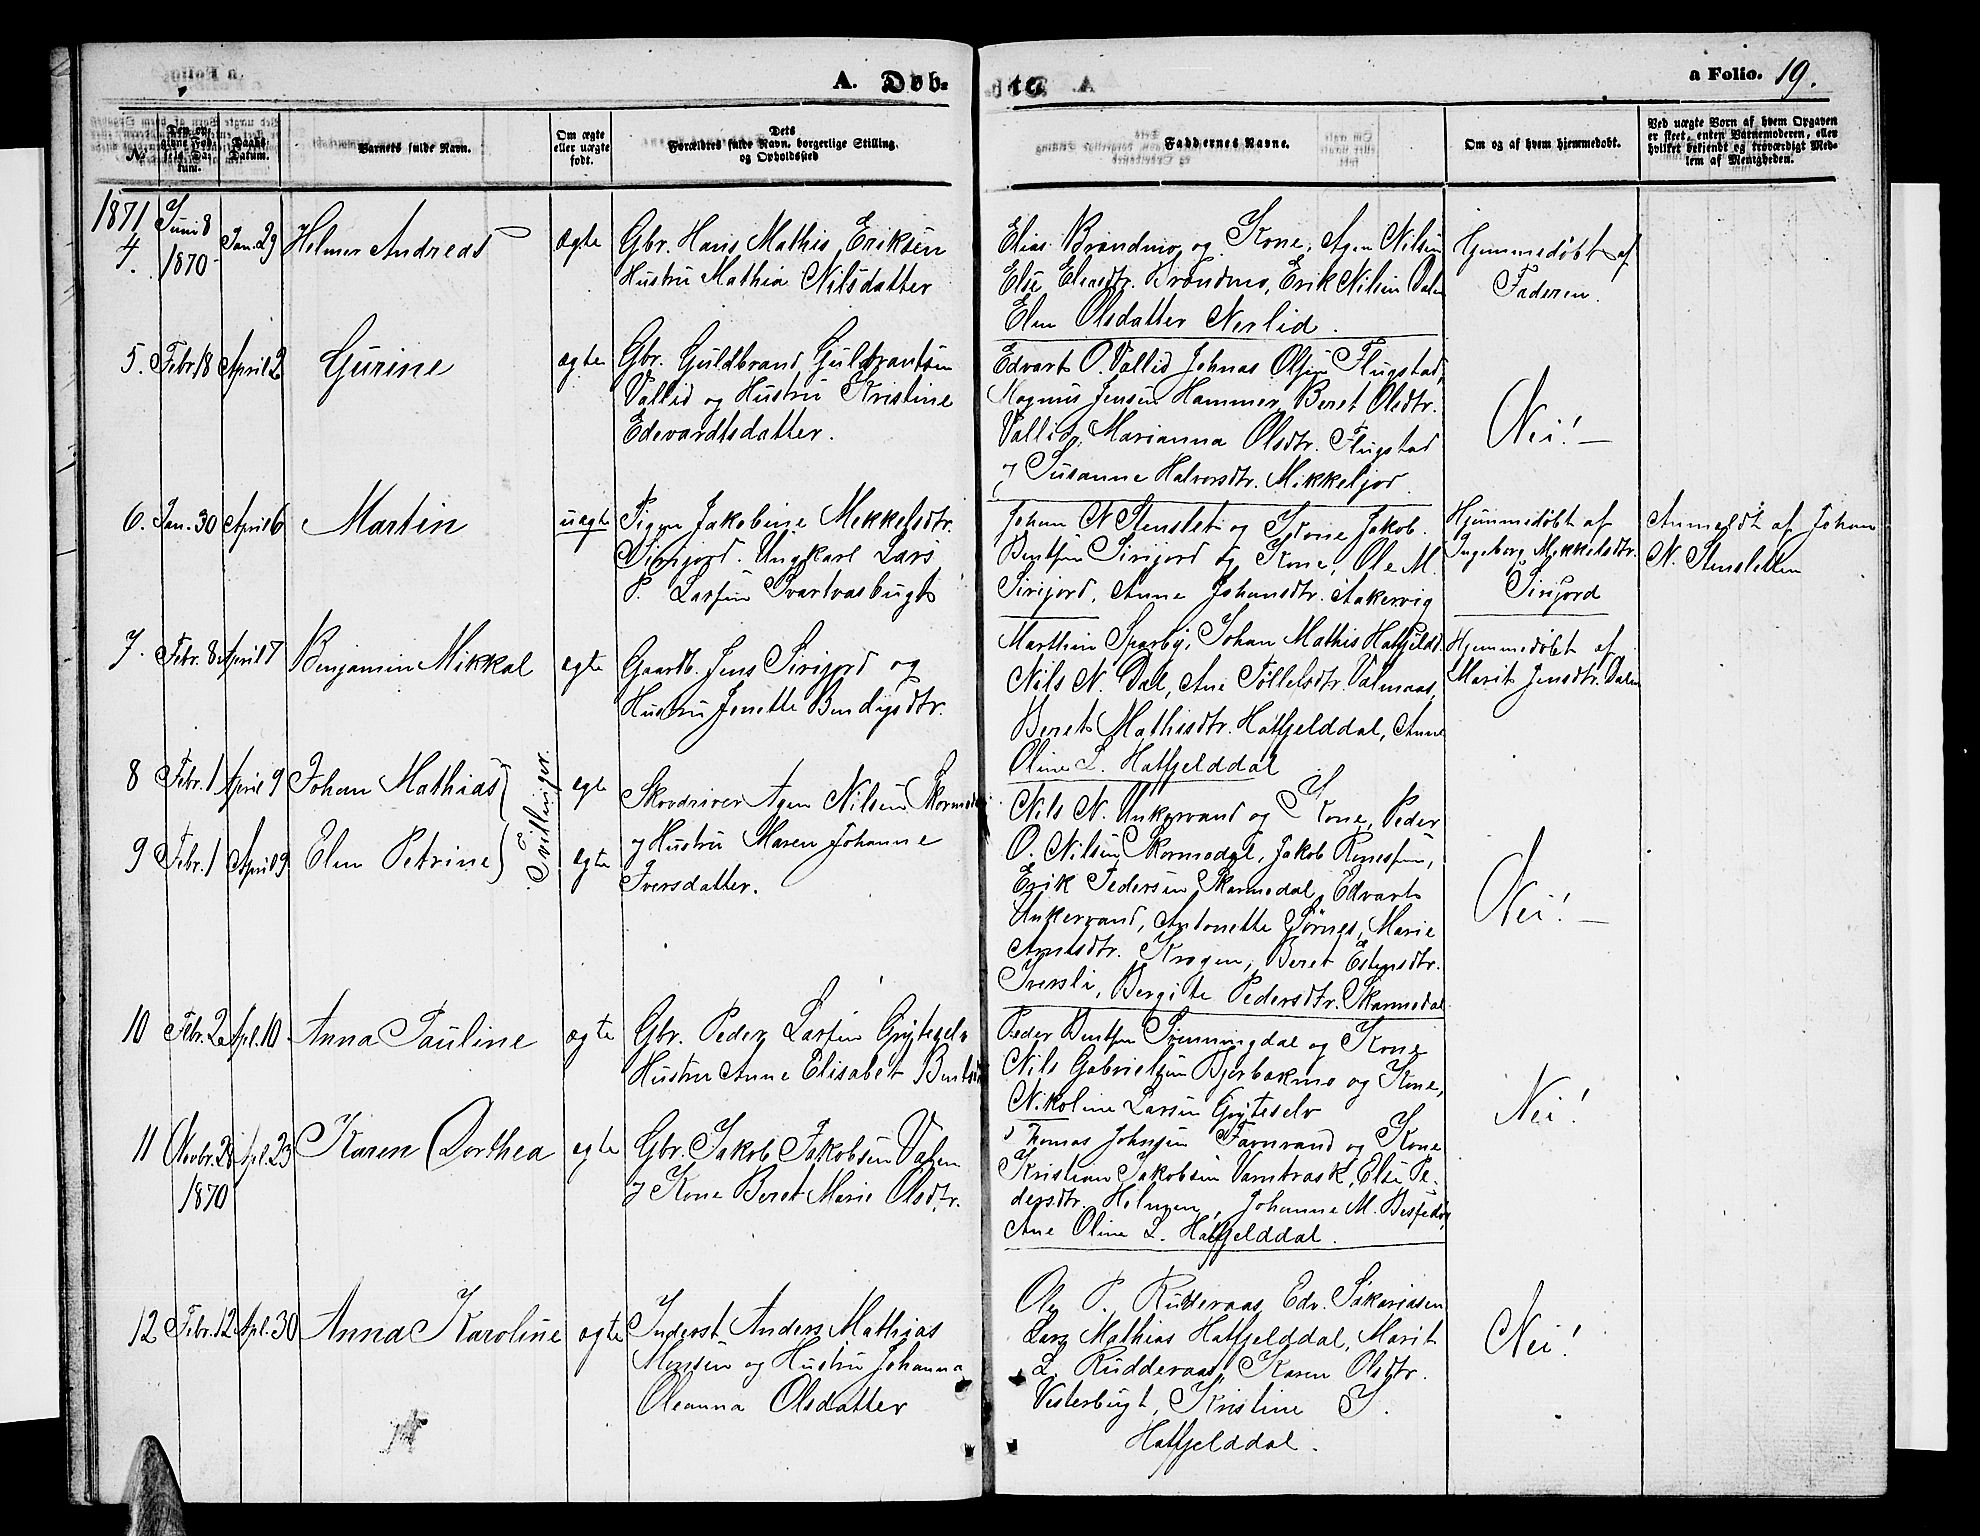 A. Døb-
te.
a Folio. 19.
No. Den opgivne Fødsels Datum. Daabs Datum. Barnets fulde Navn. Om ægte eller uægte født. Dets Forældres fulde Navn, borgerlige Stilling, og Opholdssted Faddernes Navne. Om og af hvem hjemmedøbt. Ved uægte Born af hvem Opgaven er skeet, enten Barnemoderen, eller hvilket bekjendt og troværdigt Medlem af Menigheden.
1871
4. Juni 8 1870 Jan. 29 Helmer Andreas ægte
Gbr. Hans Mathis Eriksen
Hustru Mathea Nilsdatter
Elias Brændmo og Kone, Agen Nilsen
Else Eliasdtr. Brændmo, Erik Nilsen Dalen
Elen Olsdatter Nerlid.
Hjemmedøbt af
Faderen.
5. Febr. 18 April 2 Gurine ægte
Gbr. Guldbrand Guldbrantsen
Vallid og Hustru Kristine
Edevardtsdatter.
Edvart O. Vallid Johnas Olsen Flugstad,
Magnus Jensen Hammer, Beret Olsdtr.
Vallid, Marianna Olsdtr. Flugstad
& Susanne Halvorsdtr. Mikkeljor.
Nei! -
6. Jan. 30 April 6 Martin uægte
Pigen Jakobine Mikkelsdtr.
Sirijord. Ungkarl Lars
P. Larsen Svartvasbugt
Johan N Stenslet og Kone Jakob
Bentsen Sirijord og Kone, Ole M.
Sirijord, Anne Johansdtr. Aakervig
Hjemmedøbt af
Ingeborg Mikkelsdtr.
Sirijord
Anmeldt af Johan
N. Stensletten
7. Febr. 8 April 7 Benjamin Mikkal ægte
Gaardb. Jens Sirijord og
Hustru Jonette Bendigsdtr.
Marthin Sparby, Johan Mathis Hatfjeldd.
Nils N. Dal, Ane Tøllefsdtr. Valmaas,
Beret Mathisdtr. Hatfjelddal, Anne
Oline L. Hatfjelddal
Hjemmedøbt af
Marit Jensdtr. Dalen
8 Febr. 1 April 9 Johan Mathias ægte
9 Febr. 1 April 9 Elen Petrine ægte
Tvillinger.
Skovdriver Agen Nilsen Skarmodal
& Hustru Maren Johanne
Iversdatter.
Nils N. Unkervand og Kone, Peder
O. Nilsen Skarmodal, Jakob
Erik Pedersen Skarmodal, Edvart
Unkervand, Antonette Sørnes, Marie
Arntsdtr. Krogen, Beret Estensdtr.
Iversli, Bergite Pedersdtr. Skarmodal
Nei! -
10 Febr. 2 Apl. 10. Anna Pauline ægte
Gbr. Peder Larsen Gryteselv
Hustru Anne Elisabet Bentsdtr
Peder Bentsen Svenningdal og Kone
Nils Gabrielsen Bjørbækmo og Kone,
Nikoline Larsen Gryteselv
Nei!
11 Novbr. 28 1870 Apl. 23 Karen Dorthea ægte
Gbr. Jakob Jakobsen Valen
& Kone Beret Marie Olsdtr.
Thomas Johnsen Famvand og Kone
Kristian Jakobsen Varntrask, Else Pe-
dersdtr. Holmen, Johanne M.
Ane Oline L. Hatfjelddal.
12 Febr. 12 Apl. 30 Anna Karoline ægte
Inderst Anders Mathias
Monsen og Hustru Johanna
Oleanna Olsdatter
Ole P. Rudderaas Edv. Sakariasen
Lars Mathias Hatfjelddal, Marit
L. Rudderaas, Karen Olsdtr.
Vesterbugt, Kristine J.
Hatfjelddal.
Nei!